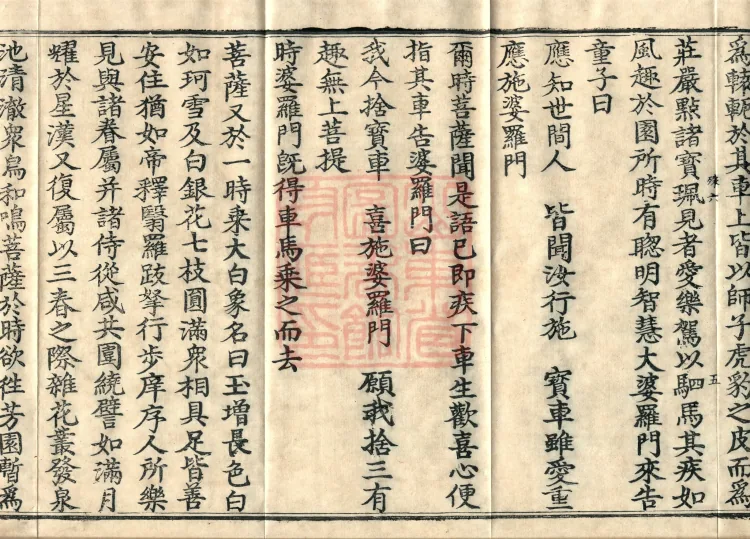 為轅軛於其車上皆以師子虎豹之皮而為
莊嚴㸃諸寶珮見者愛樂駕以駟馬其疾如
風趣於園所時有聰明智慧大婆羅門來告
童子曰
應知世間人　皆聞汝行施　寶車雖愛重
應施婆羅門
爾時菩薩聞是語已即疾下車生歡喜心便
指其車告婆羅門曰
我今捨寶車　喜施婆羅門　願我捨三有
趣無上菩提
時婆羅門旣得車馬乘之而去
菩薩又於一時乘大白象名曰玉增長色白
如珂雪及白銀花七枝圓滿衆相具足皆善
安住猶如帝釋翳羅跋拏行步庠序人所樂
見與諸眷屬并諸侍從咸共圍繞譬如滿月
耀於星漢又復屬以三春之際雜花叢發泉
池清澈衆鳥和鳴菩薩於時欲往芳園暫為
六
五